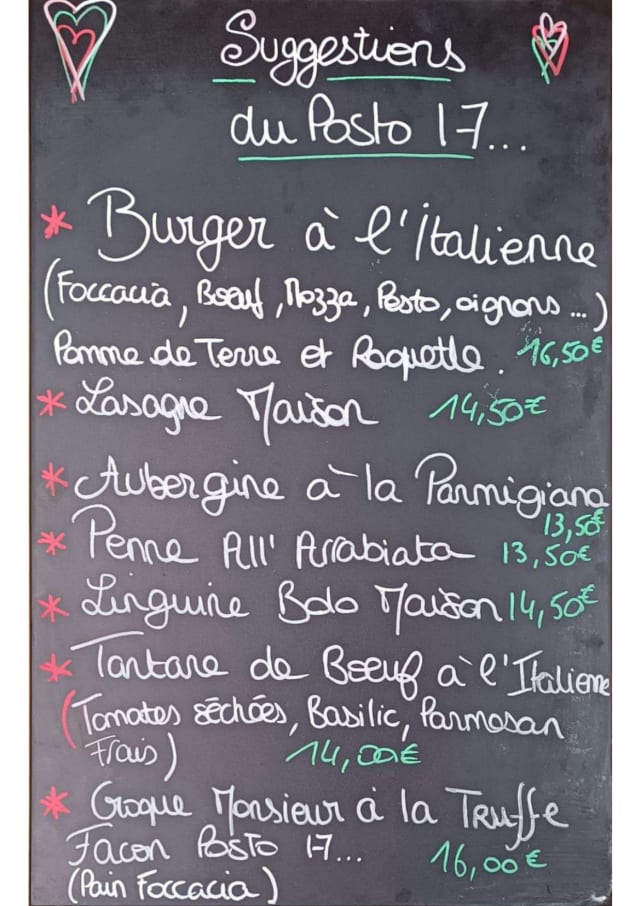 Suggestions
du Posto 17...
* Burger à l'italienne
(Foccacia, Boeuf, Mozza, Pesto, oignons ...)
Pomme de Terre et Roquette. 16,50€
* Lasagne Maison 14,50€
* Aubergine à la Parmigiana
13,50€
* Penne All' Arrabiata 13,50€
* Linguine Bolo Maison 14,50€
* Tartare de Boeuf à l'Italienne
(Tomates séchées, Basilic, Parmesan
Frais) 14,00€
* Croque Monsieur à la Truffe
Facon Posto 17...
16,00€
(Pain Foccacia)